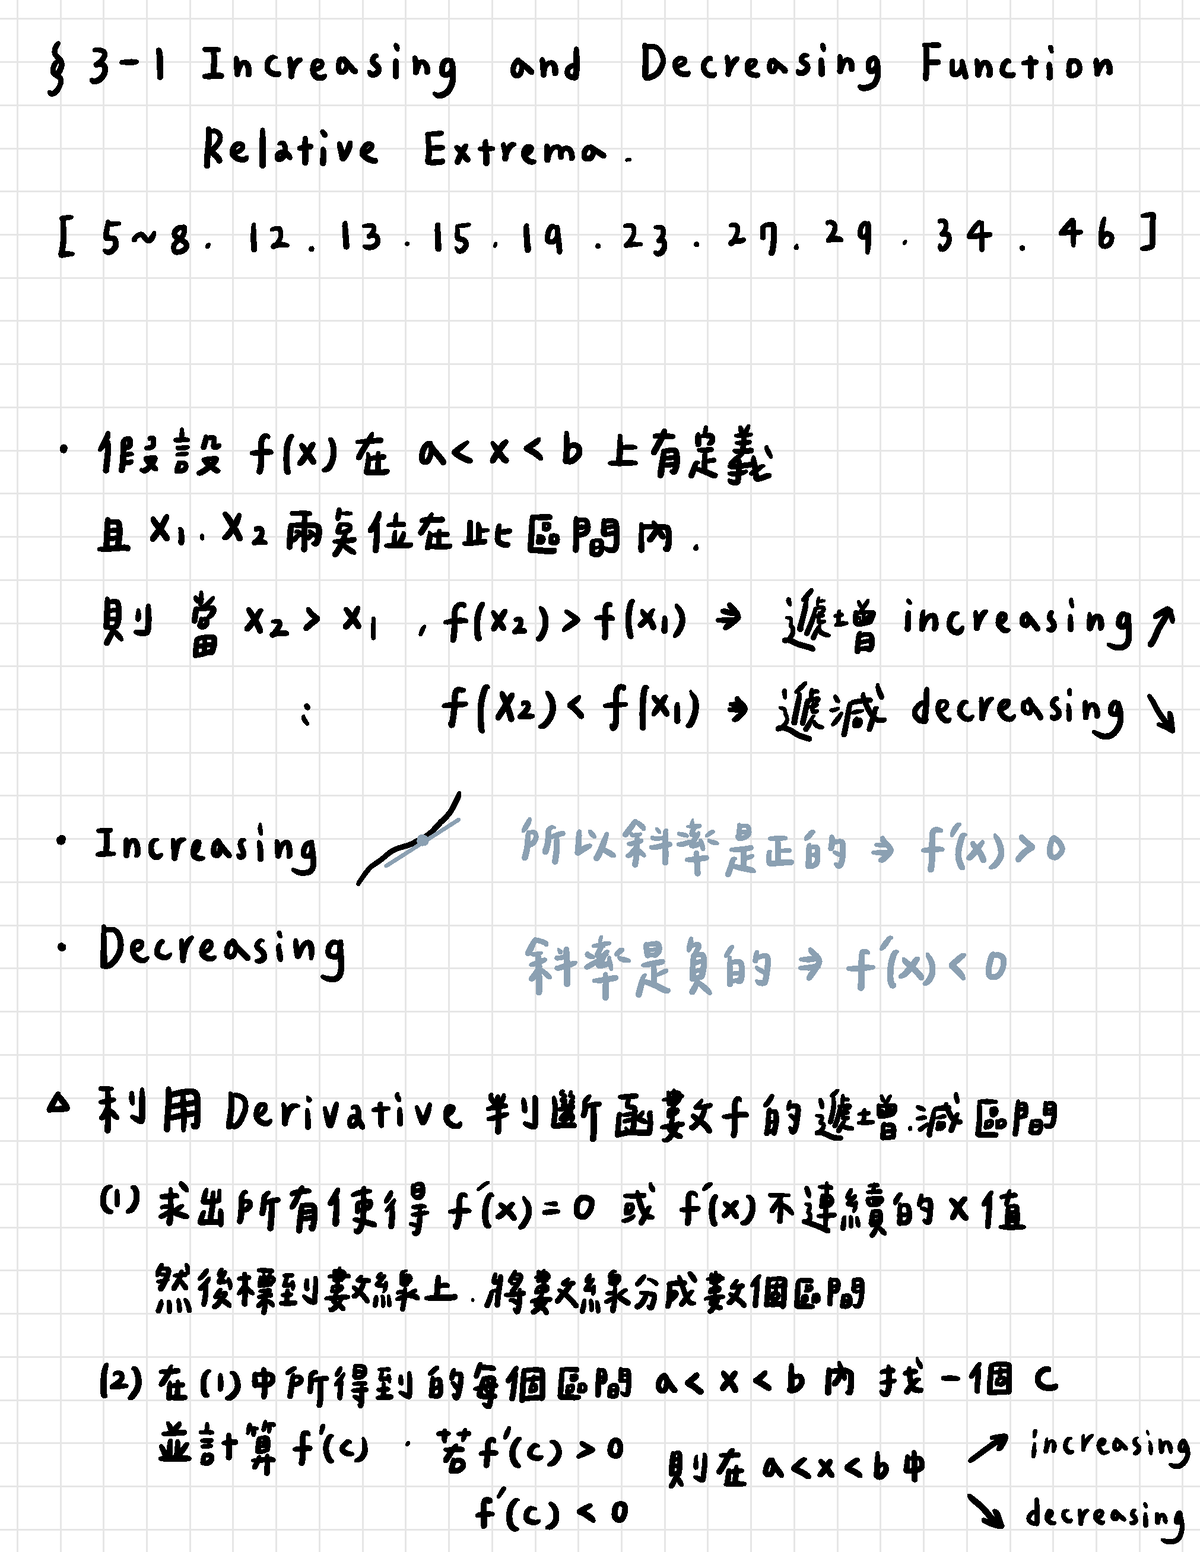 § 3-1 Increasing and Decreasing Function
Relative Extrema.
[ 5~8. 12. 13. 15. 19. 23. 27. 29. 34. 46 ]
· 假設 f(x) 在 a<x<b 上有定義
且 x₁. x₂ 兩奌位在此區間內.
則 當 x₂ > x₁ , f(x₂) > f(x₁) ⇒ 遞增 increasing ↗
: f(x₂) < f(x₁) ⇒ 遞減 decreasing ↘
· Increasing 所以斜率是正的 ⇒ f′(x) > 0
· Decreasing 斜率是負的 ⇒ f′(x) < 0
△ 利用 Derivative 判斷函數 f 的遞增.減區間
(1) 求出所有使得 f′(x) = 0 或 f′(x) 不連續的 x 值
然後標到數線上. 將數線分成數個區間
(2) 在(1)中所得到的每個區間 a<x<b 內 找一個 c
並計算 f′(c) · 若 f′(c) > 0 則在 a<x<b 中 ↗ increasing
f′(c) < 0 ↘ decreasing